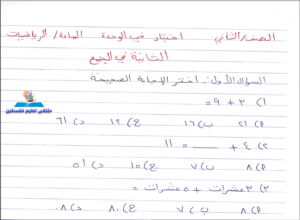 الصف/ الثاني اختبار في الوحدة المادة/ الرياضيات
الثانية في الجمع
السؤال الأول: اختر الإجابة الصحيحة
١) ٣ + ٩ =
أ) ٢١ ب) ١٦ ج) ١٢ د) ٦١
٢) ٤ + ــــ = ١١
أ) ٨ ب) ٧ ج) ١٥ د) ٥١
٣) ٣ عشرات + ٥ عشرات =
أ) ٨ ب) ٧ ج) ٨٠ د) ٠٨
ملتقى تعليم فلسطين